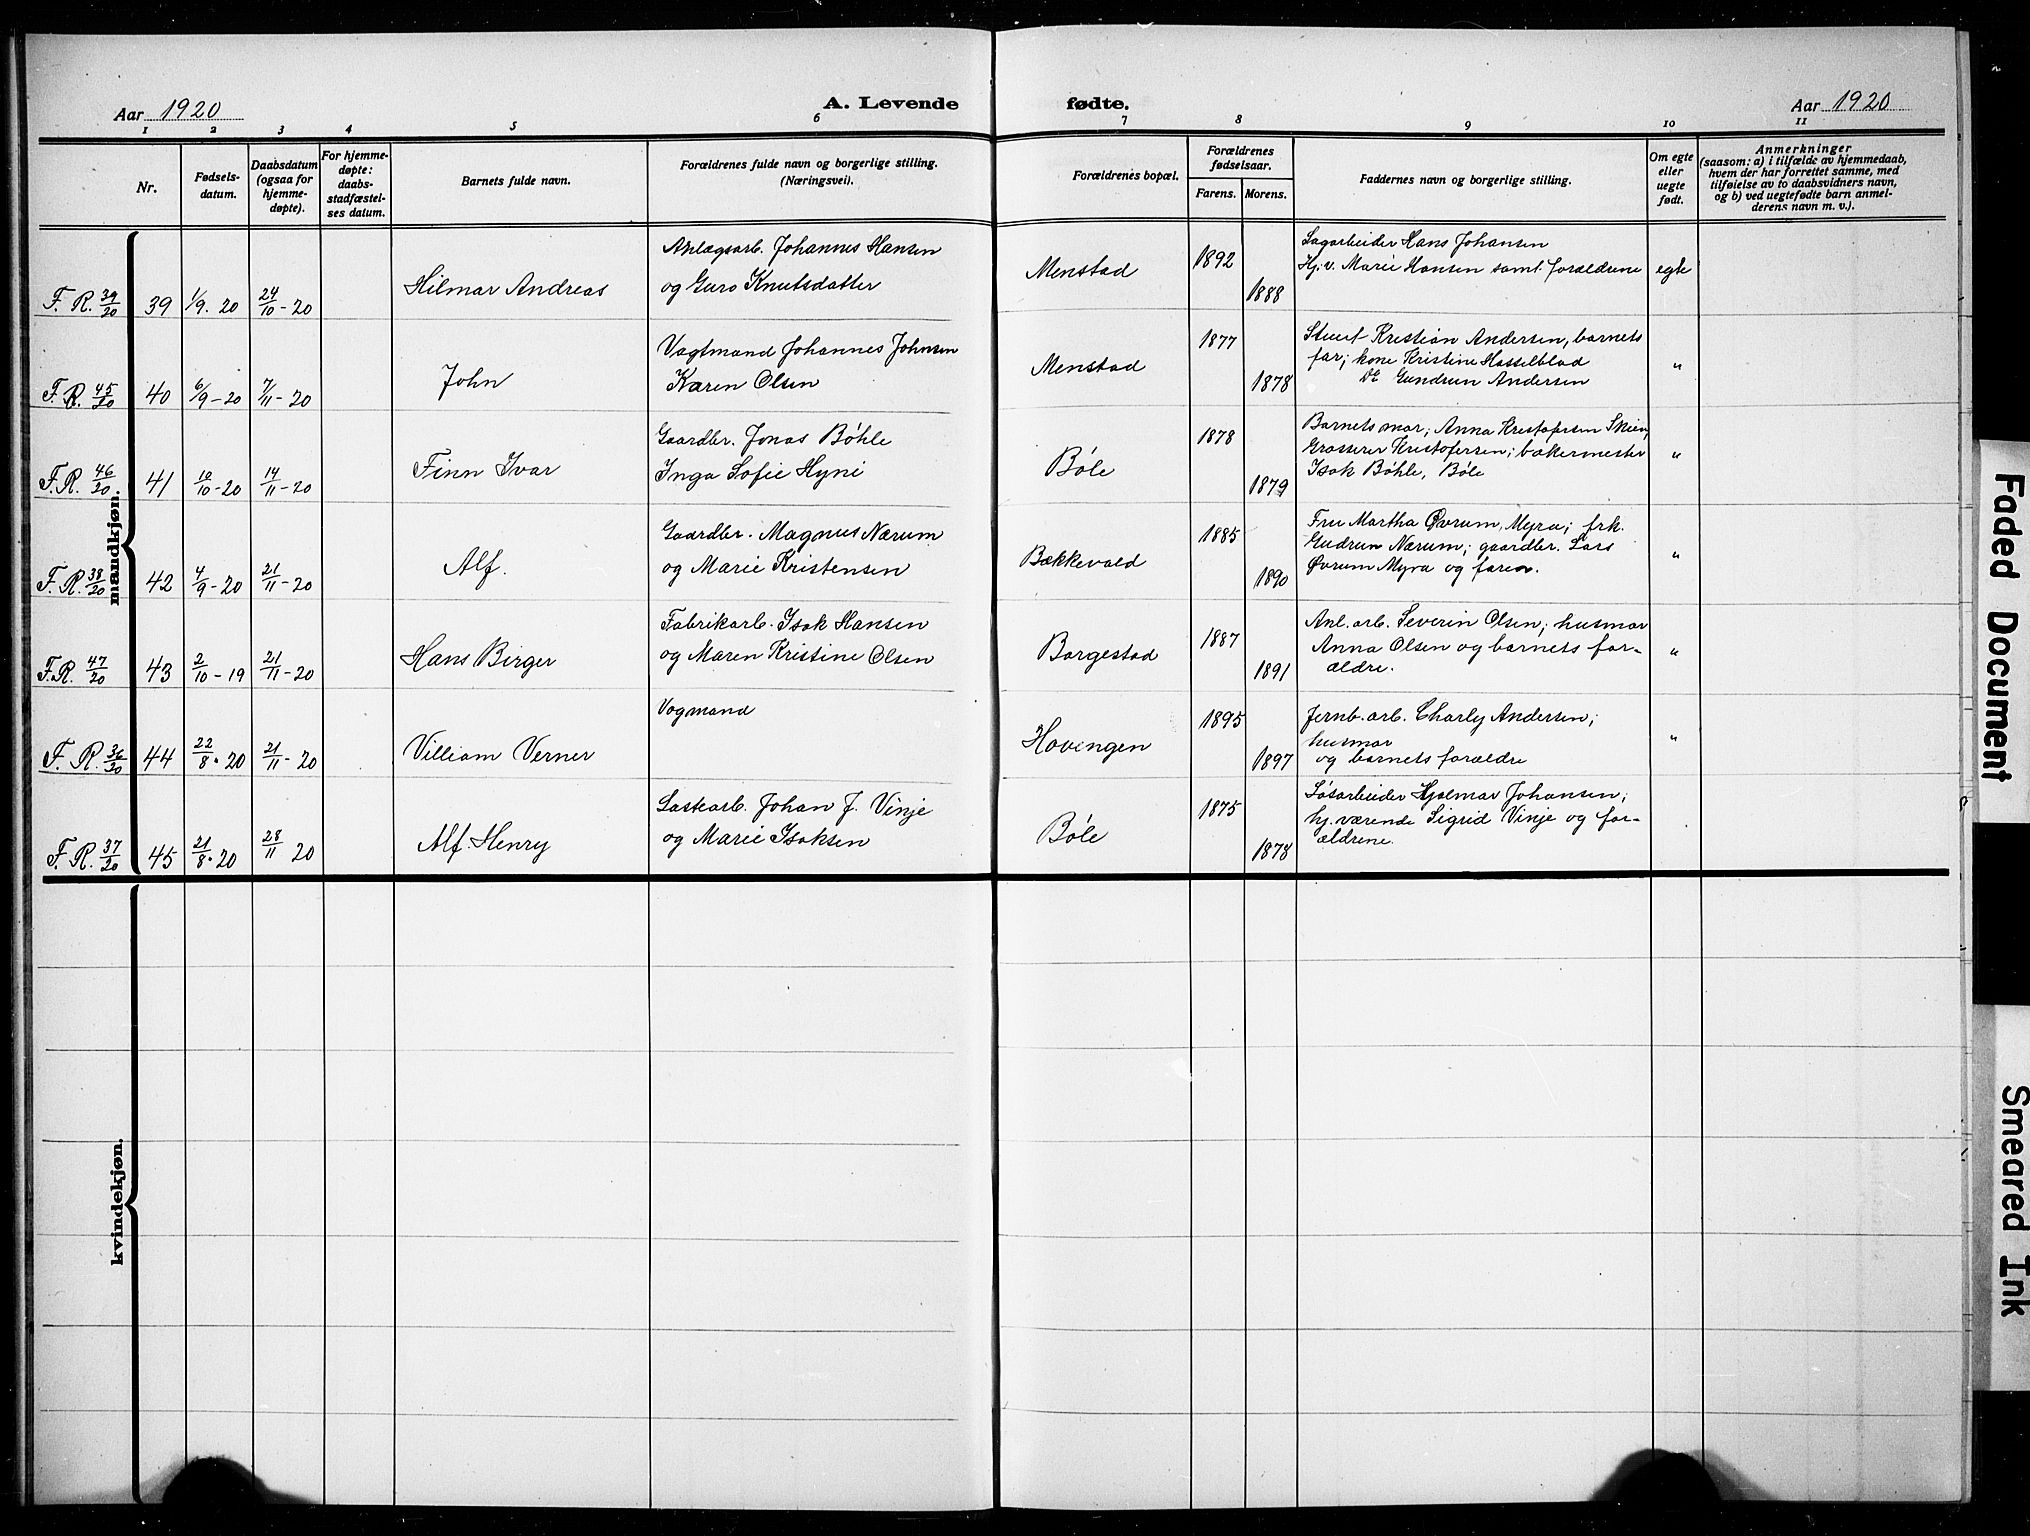 Aar 1920
A. Levende fødte.
Aar 1920
1 2 3 4 5 6 7 8 9 10 11
Nr.
Fødsels-
datum.
Daabsdatum
(ogsaa for
hjemme-
døpte).
For hjemme-
døpte:
daabs-
stadfæstel-
ses datum.
Barnets fulde navn.
Forældrenes fulde navn og borgerlige stilling.
(Næringsvei).
Forældrenes bopæl.
Forældrenes
fødselsaar.
Farens. Morens.
Faddernes navn og borgerlige stilling.
Om egte
eller
uegte
født.
Anmerkninger
(saasom: a) i tilfælde av hjemmedaab,
hvem der har forrettet samme, med
tilføielse av to daabsvidners navn,
og b) ved uegtefødte barn anmel-
derens navn m. v.).
mandkjøn.
F. R. 39/20 39 1/9. 20 24/10-20
Hilmar Andreas
Anlægsarb. Johannes Hansen
og Guro Knutsdatter
Menstad
1892
1888
Sagarbeider Hans Johansen
Hj.v. Marie Hansen samt forældrene
egte
F. R. 45/20 40 6/9-20 7/11-20
John
Vagtmand Johannes Johnsen
Karen Olsen
Menstad
1877
1878
Stuert Kristian Andersen, barnets
far; kone Kristine Hasselblad
Do Gundrun Andersen
"
F. R. 46/20 41 10/10-20 14/11-20
Finn Ivar
Gaardbr. Jonas Bøhle
Inga Sofie Hyni
Bøle
1878
1879
Barnets mor; Anna Kristofersen Skien;
Grosserer Kristofersen; bakermester
Isak Bøhle, Bøle
"
F. R. 38/20 42 4/9-20 21/11-20
Alf.
Gaardbr. Magnus Nærum
og Marie Kristensen
Bækkevold
1885
1890
Fru Martha Øvrum, Myra; frk.
Gudrun Nærum; gaardbr. Lars
Øvrum Myra og faren.
"
F. R. 47/20 43 2/10-19 21/11-20
Hans Birger
Fabrikarb. Isak Hansen
og Maren Kristine Olsen
Borgestad
1887
1891
Anl. arb. Severin Olsen; husmor
Anna Olsen og barnets for-
ældre.
"
F. R. 36/20 44 22/8.20 21/11-20
Villiam Verner
Vogmand
Hovingen
1895
1897
Jernb. arb. Charly Andersen;
husmor
og barnets forældre
"
F. R. 37/20 45 21/8.20 28/11 20
Alf. Henry
Lastearb. Johan J. Vinje
og Marie Isaksen
Bøle
1875
1878
Løsarbeider Hjalmar Johansen;
hj. værende Sigrid Vinje og for-
ældrene.
kvindekjøn.
Faded Document
Smeared Ink